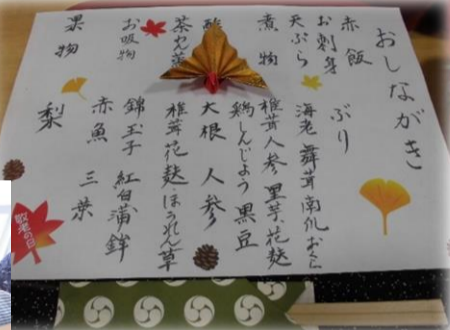 おしながき
赤飯
お刺身 ぶり
天ぷら 海老 舞茸 南瓜 おくら
煮物 椎茸 人参 里芋 花麩
鶏しんじょう 黒豆
酢 大根 人参
茶わん蒸 椎茸 花麩・ほうれん草
お吸物 錦玉子 紅白蒲鉾
赤魚 三葉
果物 梨
敬老の日